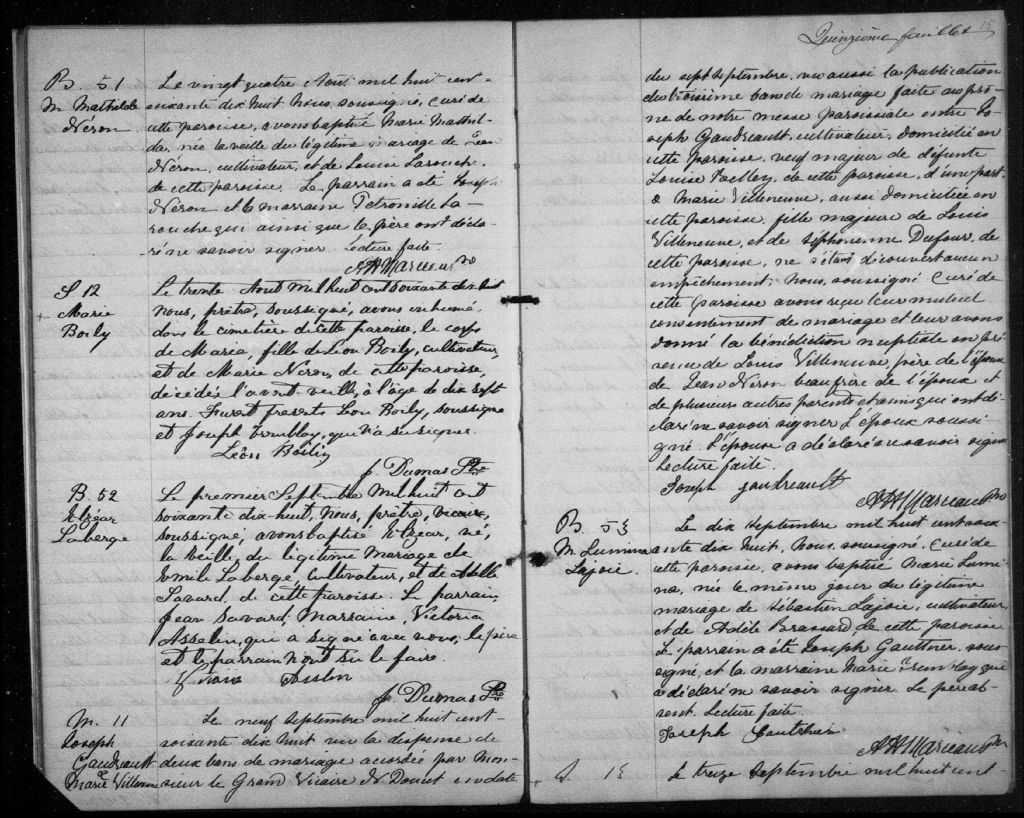 B. 51
M. Mathilde
Néron
Le vingt quatre Août mil huit cent
soixante dix huit Nous soussigné, curé de
cette paroisse, avons baptisé Marie Mathil-
da, née la veille du légitime mariage de Léon
Néron, cultivateur, et de Louise Larouche
de cette paroisse. Le parrain a été Joseph
Néron et la marraine Pétronille La-
rouche qui ainsi que le père ont décla-
ré ne savoir signer. Lecture faite.
S 12
Marie
Boily
Le trente Aout mil huit cent soixante dix huit
nous, prêtre, soussigné, avons inhumé
dans le cimetière de cette paroisse, le corps
de Marie, fille de Léon Boily, cultivateur,
et de Marie Neron, de cette paroisse,
décédée l'avant-veille, à l'âge de dix sept
ans. Furent présents Léon Boily, soussigné
et Joseph Tremblay, qui n'a su signer.
Léon Boily
J. Dumas Ptre
B. 52
Elzéar
Laberge
Le premier Septembre mil huit cent
soixante dix-huit, nous, prêtre, vicaire,
soussigné, avons baptisé Elzear, né,
la veille, du légitime mariage de
Emile Laberge, cultivateur, et de Adèle
Savard, de cette paroisse. Le parrain,
Jean Savard, Marraine, Victoria
Asselin, qui a signé avec nous, le père
et le parrain n'ont su le faire.
Asslen
J. Dumas Ptre
M. 11
Joseph
Gaudreault
&
Marie Villeneuve
Le neuf septembre mil huit cent-
soixante dix huit vu la dispense de
deux bans de mariage accordée par Mon-
sieur le Grand Vicaire D. Doucet en date
Quinzième feuillet 15
du sept septembre, vu aussi la publication
du troisième ban de mariage faite au prô-
ne de notre messe paroissiale entre Jo-
seph Gaudreault, cultivateur, domicilié en
cette paroisse, veuf majeur de défunte
Louise de cette paroisse, d'une part
& Marie Villeneuve, aussi domiciliée en
cette paroisse, fille majeure de Louis
Villeneuve, et de Dufour, de
cette paroisse, ne s'étant découvert aucun
empêchement; Nous, soussigné curé de
cette paroisse avons reçu leur mutuel
consentement de mariage et leur avons
donné la bénédiction nuptiale en pré-
sence de Louis Villeneuve, père de l'épouse
de Jean Néron beau frère de l'époux et
de plusieurs autres parents et amis qui ont dé-
claré ne savoir signer L'époux soussi-
gné. L'épouse a déclaré ne savoir signer
Lecture faite.
Joseph gaudreault
B. 53
M. Lumina
Lajoie
Le dix septembre mil huit cent soix-
ante dix huit, Nous, soussigné, curé de
cette paroisse, avons baptisé Marie Lumi-
na, née le même jour du légitime
mariage de Sébastien Lajoie, cultivateur
et de Adèle Brassard de cette paroisse
Le parrain a été Joseph Gauthier, sous-
signé, et la marraine Marie Tremblay qui
a déclaré ne savoir signer. Le père ab-
sent. Lecture faite.
Joseph Gauthier
S. 13
Le treize septembre mil huit cent-